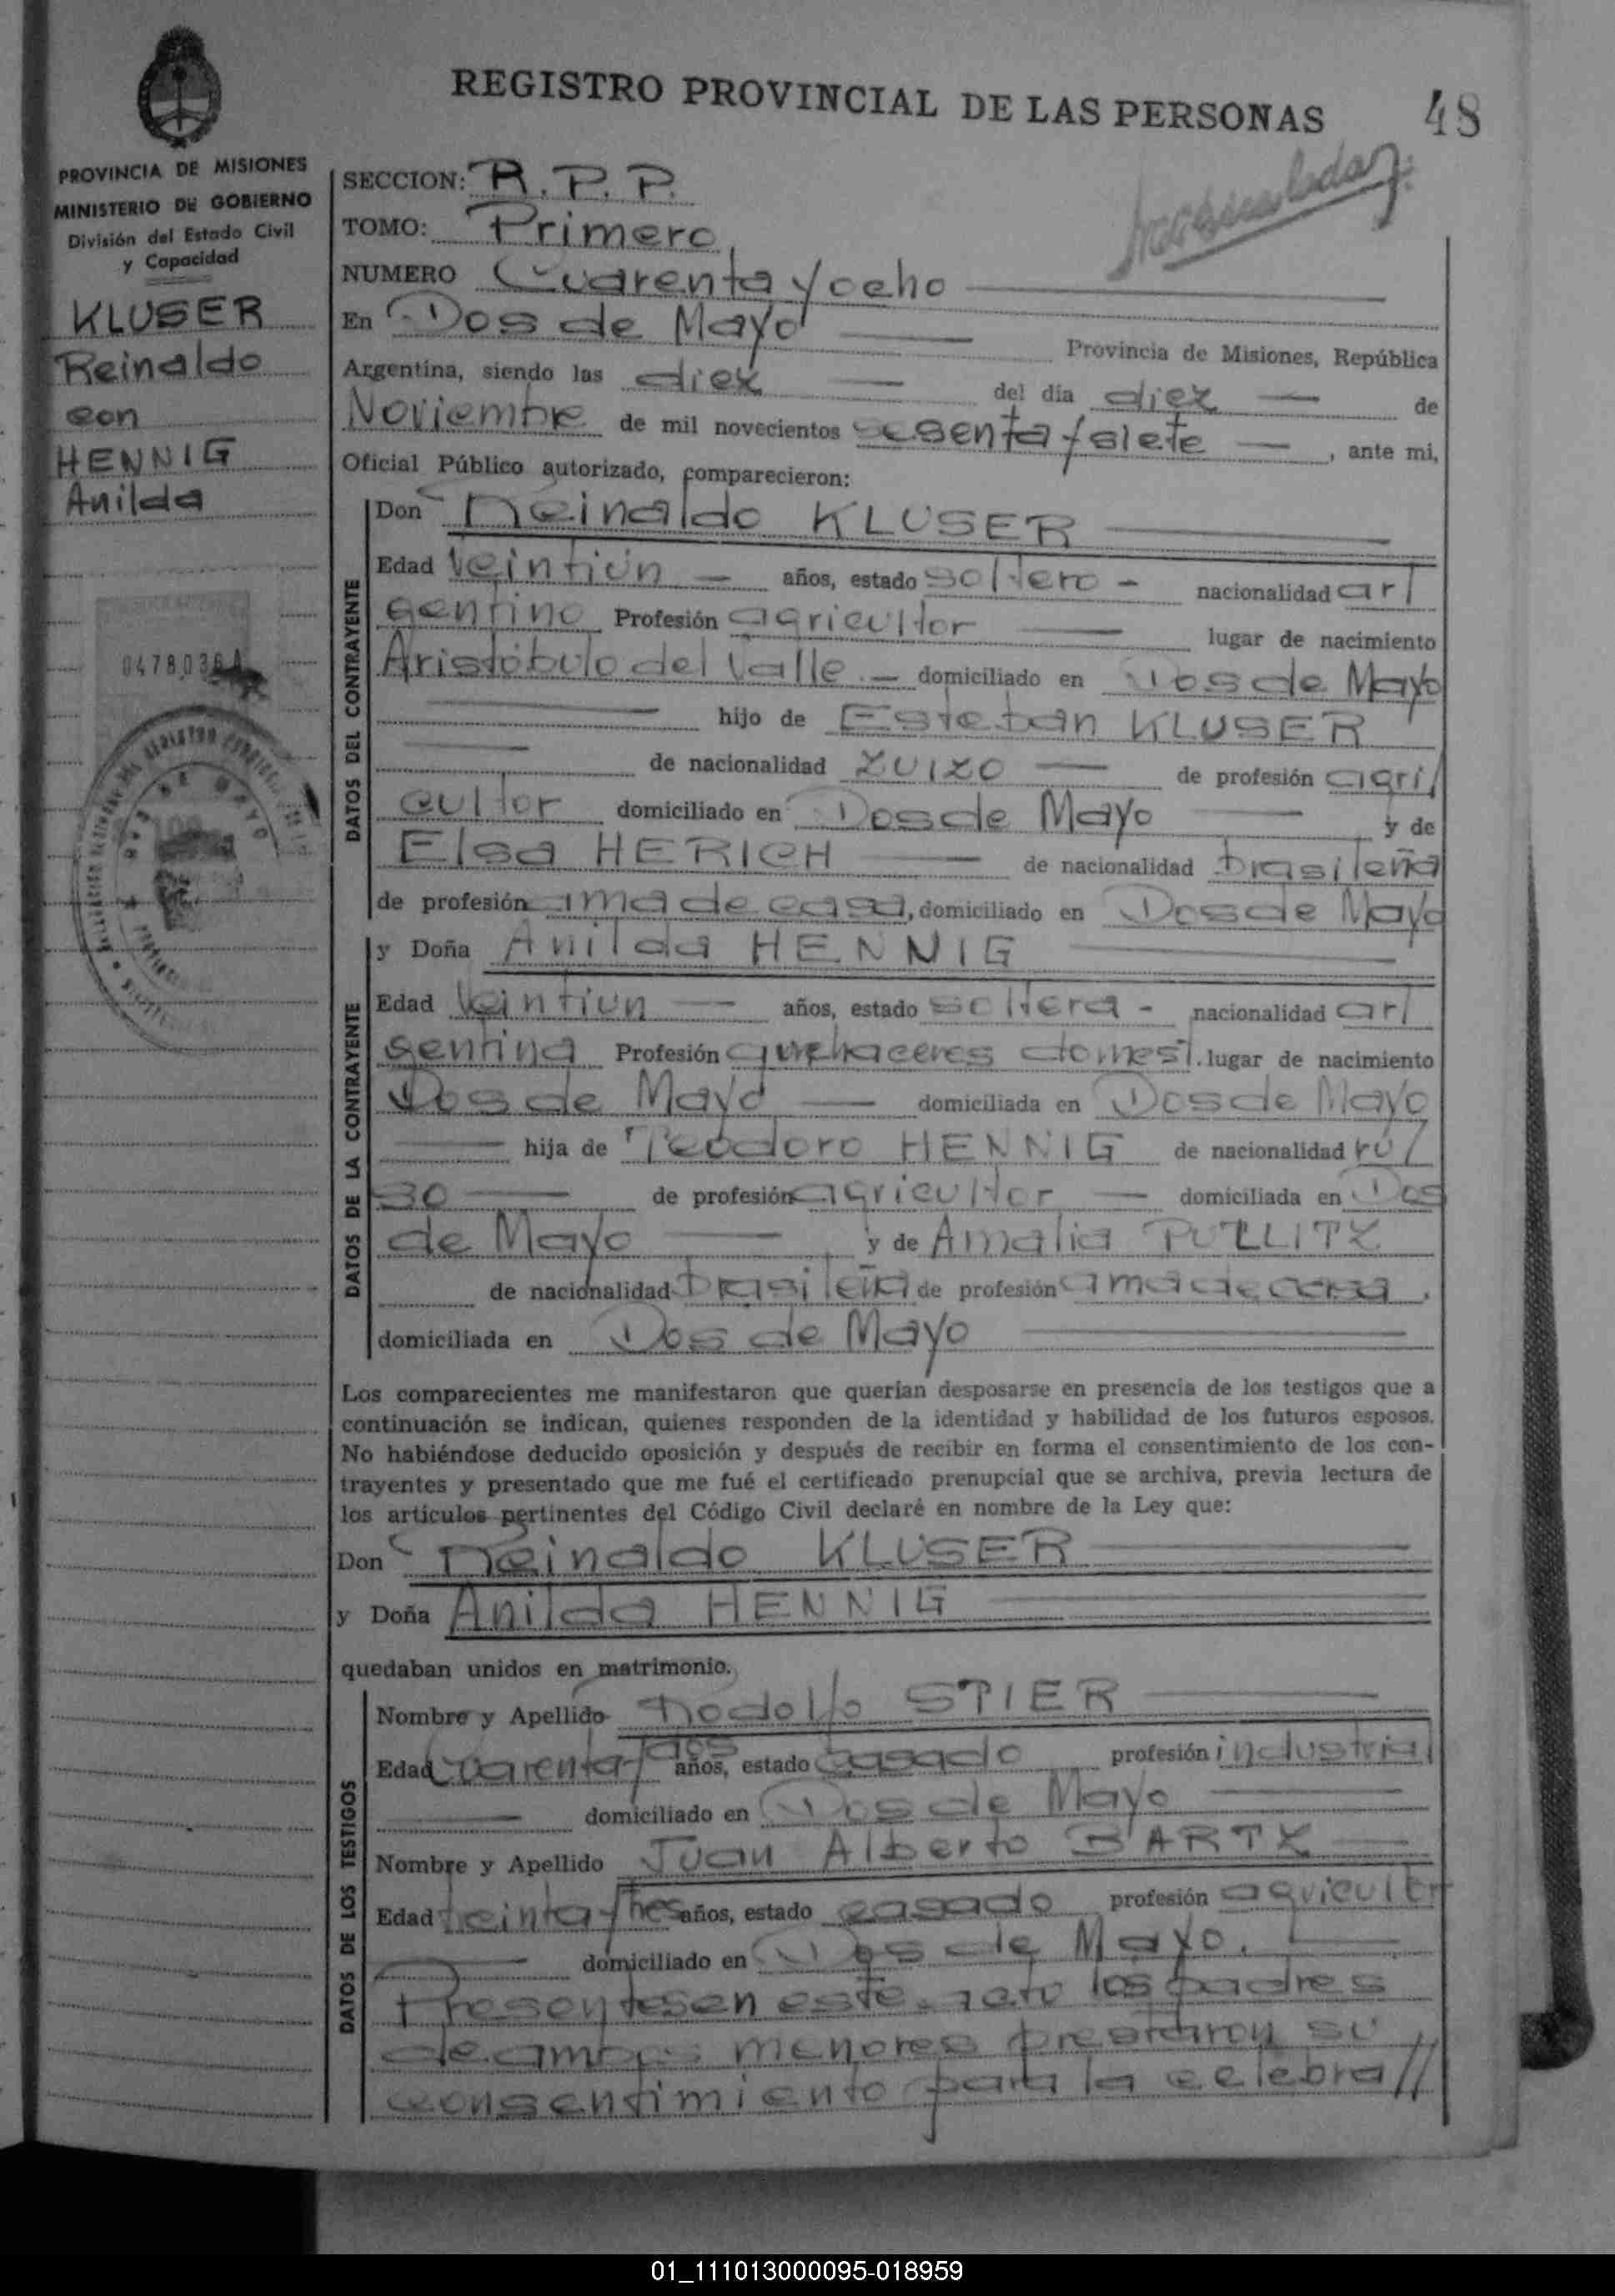 REGISTRO PROVINCIAL DE LAS PERSONAS 48
PROVINCIA DE MISIONES
MINISTERIO DE GOBIERNO
División del Estado Civil
y Capacidad
KLUSER
Reinaldo
con
HENNIG
Anilda
0478036
SECCION: R.P.P.
TOMO: Primero
NUMERO Cuarenta y ocho
En Dos de Mayo Provincia de Misiones, República
Argentina, siendo las diez del día diez de
Noviembre de mil novecientos sesenta y siete, ante mi,
Oficial Público autorizado, comparecieron:
DATOS DEL CONTRAYENTE
Don Reinaldo KLUSER
Edad veintiún años, estado soltero - nacionalidad ar/
gentino Profesión agricultor lugar de nacimiento
Aristóbulo del Valle.- domiciliado en Dos de Mayo
hijo de Esteban KLUSER
de nacionalidad zuizo de profesión agri/
cultor domiciliado en Dos de Mayo y de
Elsa HERICH de nacionalidad brasileña
de profesión ama de casa, domiciliado en Dos de Mayo
DATOS DE LA CONTRAYENTE
y Doña Anilda HENNIG
Edad veintiun años, estado soltera - nacionalidad ar/
gentina Profesión quehaceres domest. lugar de nacimiento
Dos de Mayo domiciliada en Dos de Mayo
hija de Teodoro HENNIG de nacionalidad ru/
so de profesión agricultor domiciliada en Dos
de Mayo y de Amalia PUZLITZ
de nacionalidad brasileña de profesión ama de casa,
domiciliada en Dos de Mayo
Los comparecientes me manifestaron que querían desposarse en presencia de los testigos que a
continuación se indican, quienes responden de la identidad y habilidad de los futuros esposos.
No habiéndose deducido oposición y después de recibir en forma el consentimiento de los con-
trayentes y presentado que me fué el certificado prenupcial que se archiva, previa lectura de
los artículos pertinentes del Código Civil declaré en nombre de la Ley que:
Don Reinaldo KLUSER
y Doña Anilda HENNIG
quedaban unidos en matrimonio.
DATOS DE LOS TESTIGOS
Nombre y Apellido Rodolfo STIER
Edad Cuarenta y dos años, estado casado profesión industrial
domiciliado en Dos de Mayo
Nombre y Apellido Juan Alberto BARTZ
Edad treinta y tres años, estado casado profesión agricultor
domiciliado en Dos de Mayo.
Presentes en este acto los padres
de ambos menores prestaron su
consentimiento para la celebra//
01_111013000095-018959